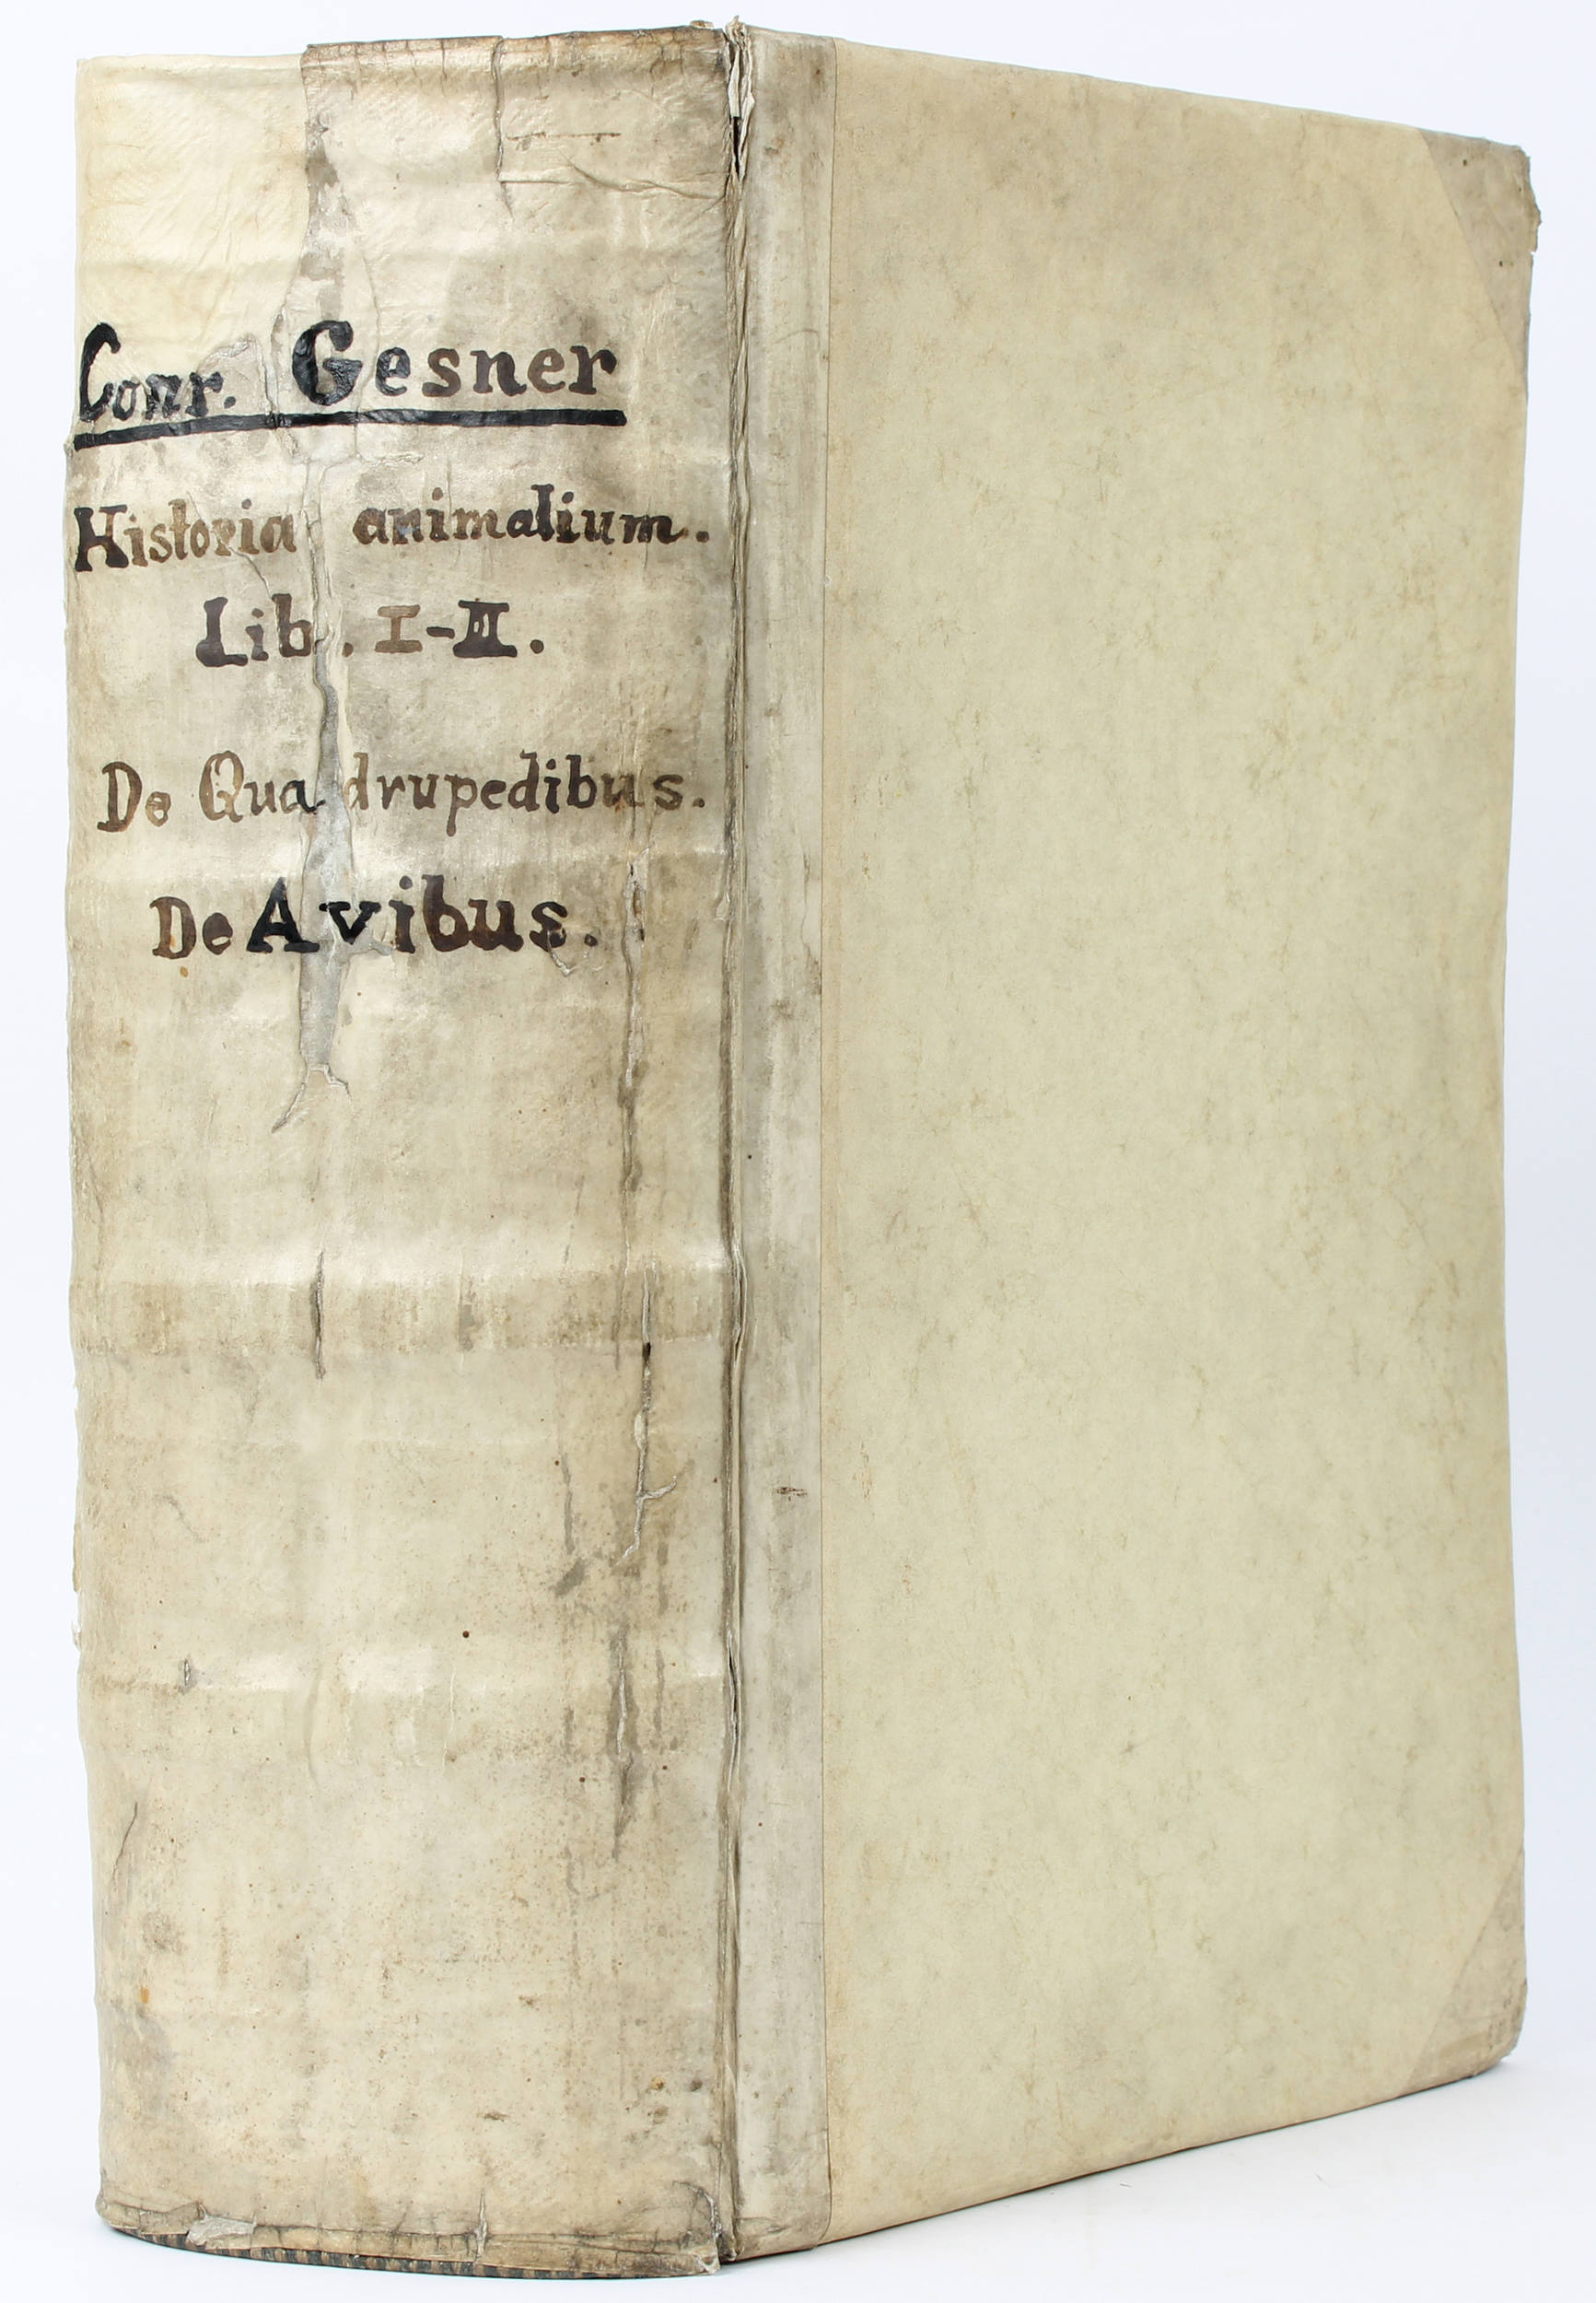 Conr. Gesner
Historia animalium.
Lib. I-III.
De Quadrupedibus.
De Avibus.